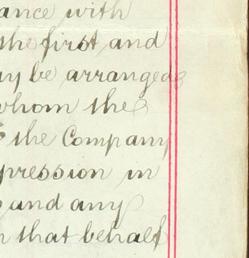 ance with
the first and
ay be arranged
whom the
the Company
pression in
and any
that behalf